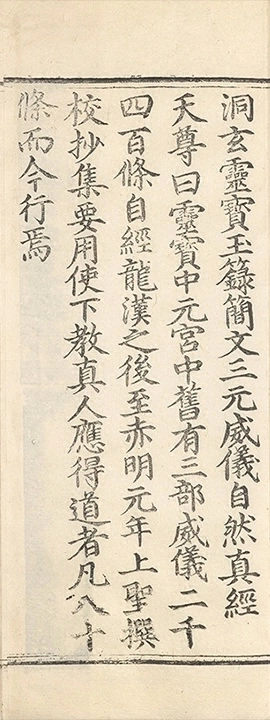 洞玄靈寶玉籙簡文三元威儀自然真經
天尊曰靈寶中元宮中舊有三部威儀二千
四百條自經龍漢之後至赤明元年上聖撰
校抄集要用使下教真人應得道者凡八十
條而今行焉